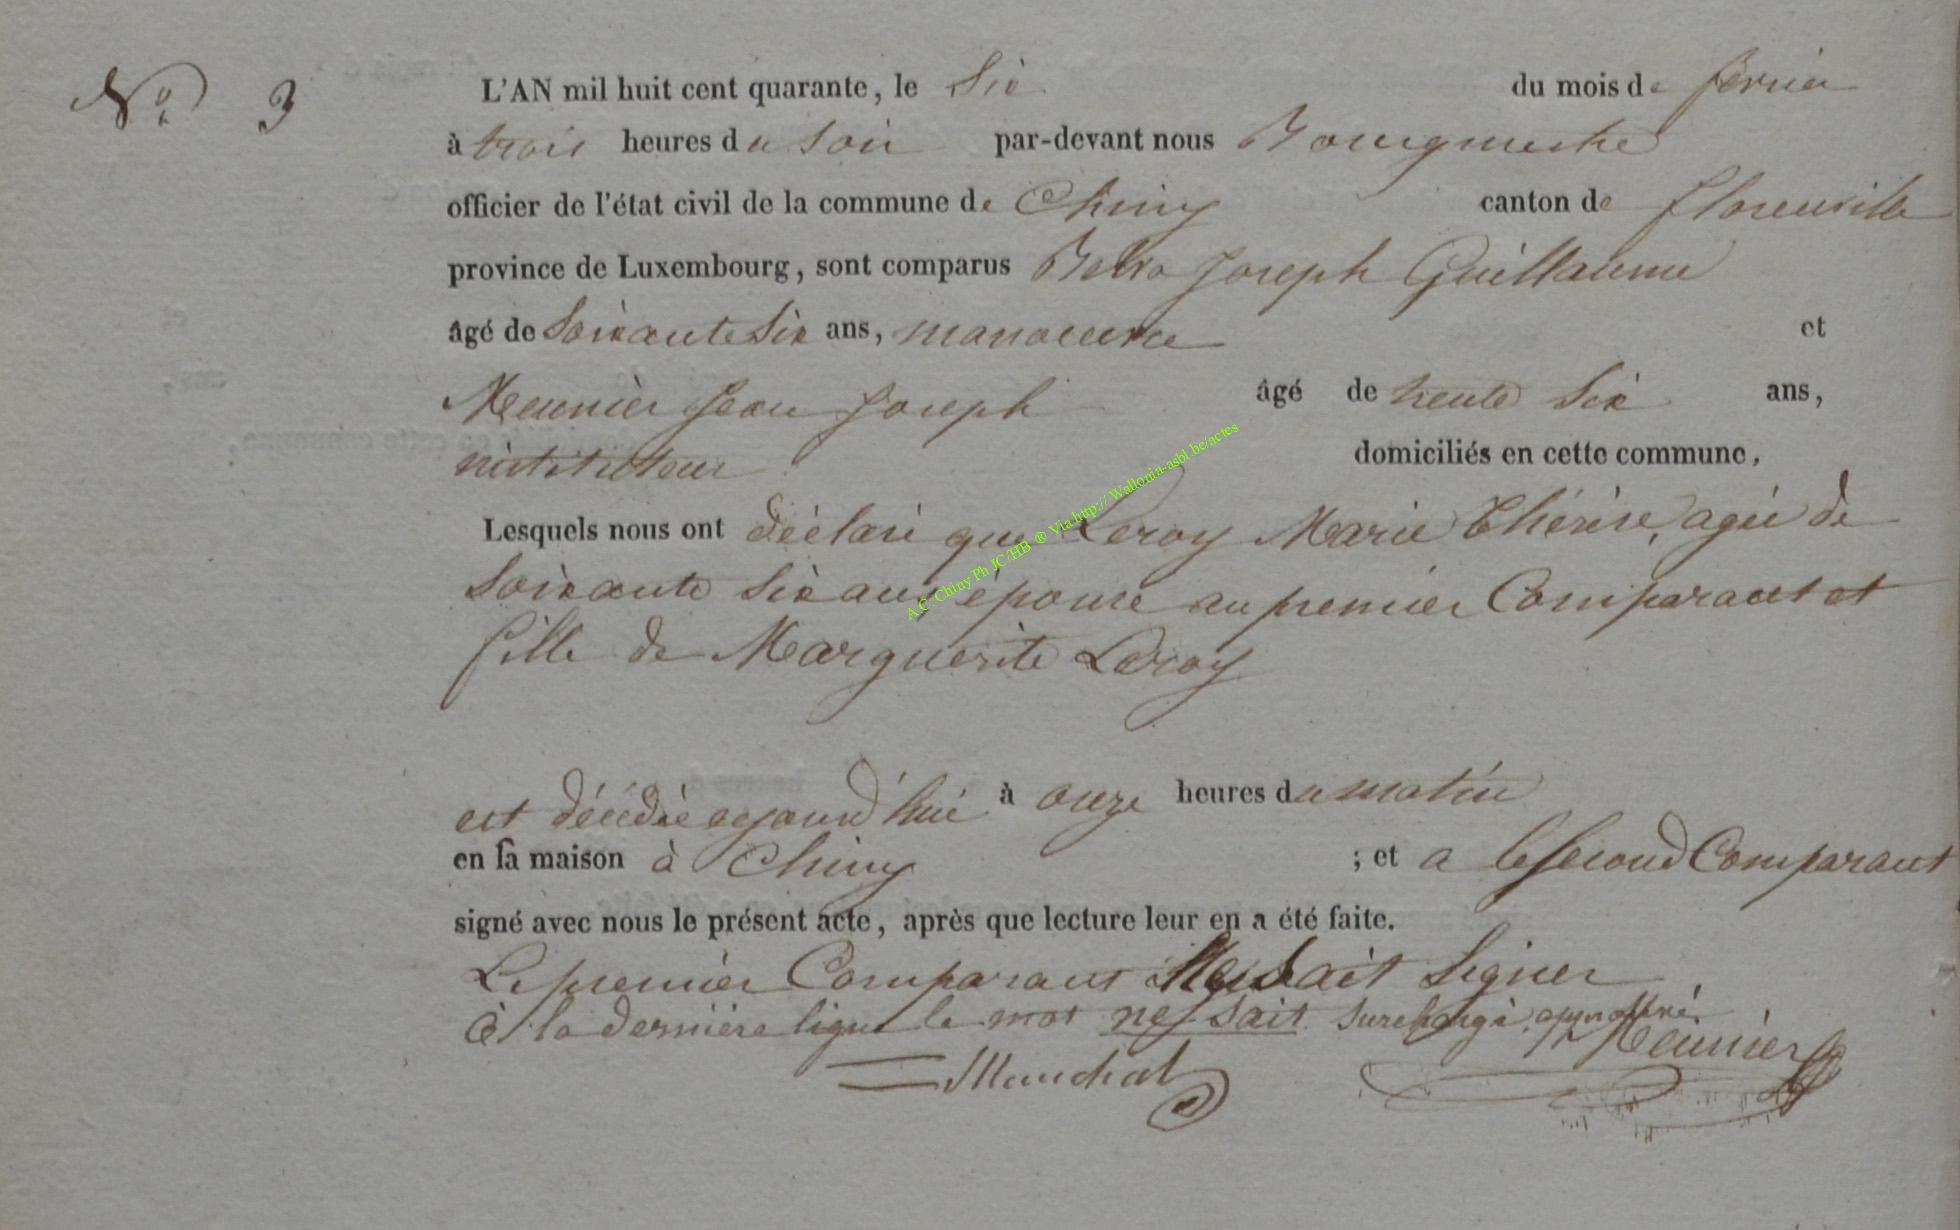 N° 3
L'AN mil huit cent quarante, le Six du mois de fevrier
à trois heures du Soir par-devant nous Bourgmestre
officier de l'état civil de la commune de Chiny canton de florenville
province de Luxembourg, sont comparus Joseph Guillaume
âgé de Soixante Six ans, manoeuvre et
Meunier Jean Joseph âgé de trente Six ans,
instituteur domiciliés en cette commune,
Lesquels nous ont déclaré que Leroy Marie Thérèse, agée de
Soixante Six ans épouse au premier Comparant et
fille de Marguerite Leroy
est décédée aujourd'hui à onze heures du matin
en sa maison à Chiny ; et a le second Comparant
signé avec nous le présent acte, après que lecture leur en a été faite.
Le premier Comparant Ne Sait Signer
à la dernière ligne le mot ne sait surchargé, approuvé.
Marchal Meunier
A.C. Chiny Ph JC/HB ® Via http:// Wallonia-asbl.be/actes